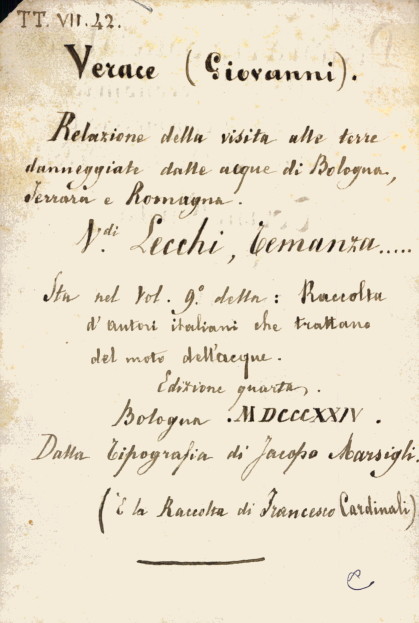 TT. VII. 42.
Verace (Giovanni).
Relazione della visita alle terre
danneggiate dalle acque di Bologna,
Ferrara e Romagna.
V.di Lecchi, Temanza.....
Sta nel Vol. 9.o della: Raccolta
d'autori italiani che trattano
del moto dell'acque.
Edizione quarta.
Bologna. MDCCCXXIV.
Dalla Tipografia di Jacopo Marsigli.
(È la Raccolta di Francesco Cardinali)